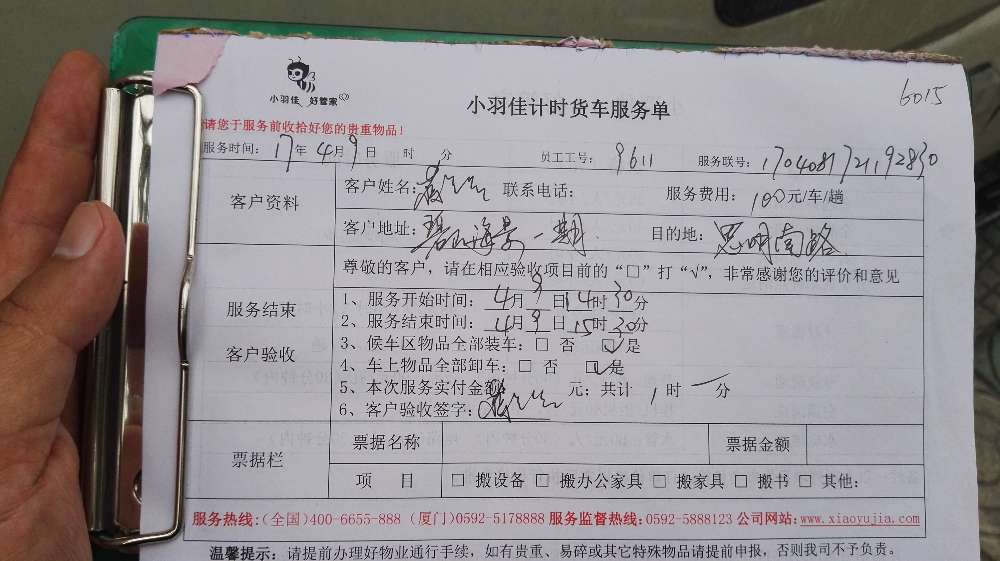 小羽佳 好管家
小羽佳计时货车服务单
6015
请您于服务前收拾好您的贵重物品！
服务时间：17年4月9日 时 分 员工工号：9611 服务联号：1704081721192830
客户资料
客户姓名： 联系电话： 服务费用：100元/车/趟
客户地址：碧山海景一期 目的地：思明南路
尊敬的客户，请在相应验收项目前的“□”打“√”，非常感谢您的评价和意见
服务结束
客户验收
1、服务开始时间：4月9日14时30分
2、服务结束时间：4月9日15时30分
3、候车区物品全部装车：□ 否 ☑是
4、车上物品全部卸车：□ 否 ☑是
5、本次服务实付金额 元；共计 1时一分
6、客户验收签字：
票据栏
票据名称 票据金额
项 目 □ 搬设备 □ 搬办公家具 □ 搬家具 □ 搬书 □ 其他：
服务热线：(全国)400-6655-888 (厦门)0592-5178888 服务监督热线：0592-5888123 公司网站：www.xiaoyujia.com
温馨提示：请提前办理好物业通行手续，如有贵重、易碎或其它特殊物品请提前申报，否则我司不予负责。